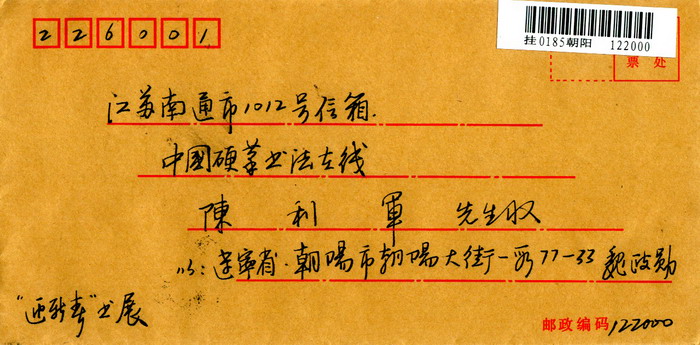 226001
挂0185朝阳 122000
票 处
江苏南通市1012号信箱.
中國硬筆书法在线
陳 利 軍 先生收
辽寧省.朝陽市朝陽大街一段77-33 魏政勋
"迎新春"书展
邮政编码 122000